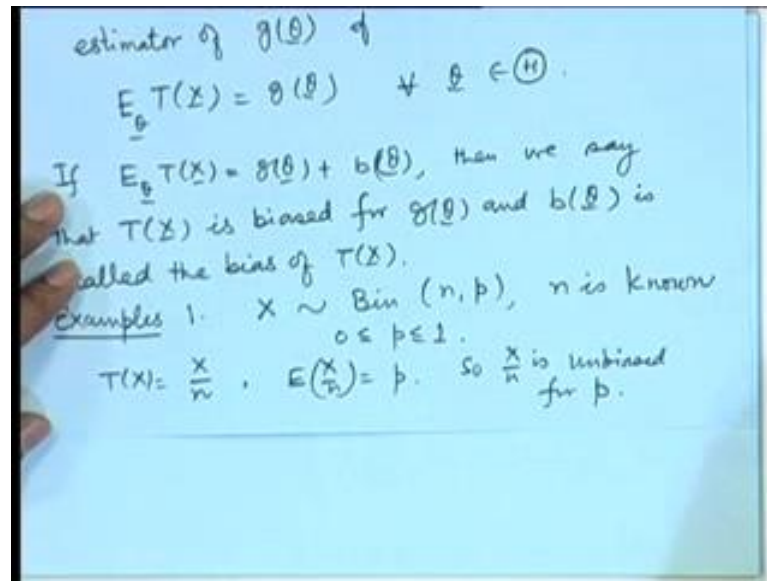 estimator of g(θ) if
E_θ T(X) = g(θ) ∀ θ ∈ Ⓗ.
If E_θ T(X) = g(θ) + b(θ), then we say
that T(X) is biased for g(θ) and b(θ) is
called the bias of T(X).
Examples 1. X ~ Bin (n, p), n is known
0 ≤ p ≤ 1.
T(X) = X/n, E(X/n) = p. So X/n is unbiased
for p.